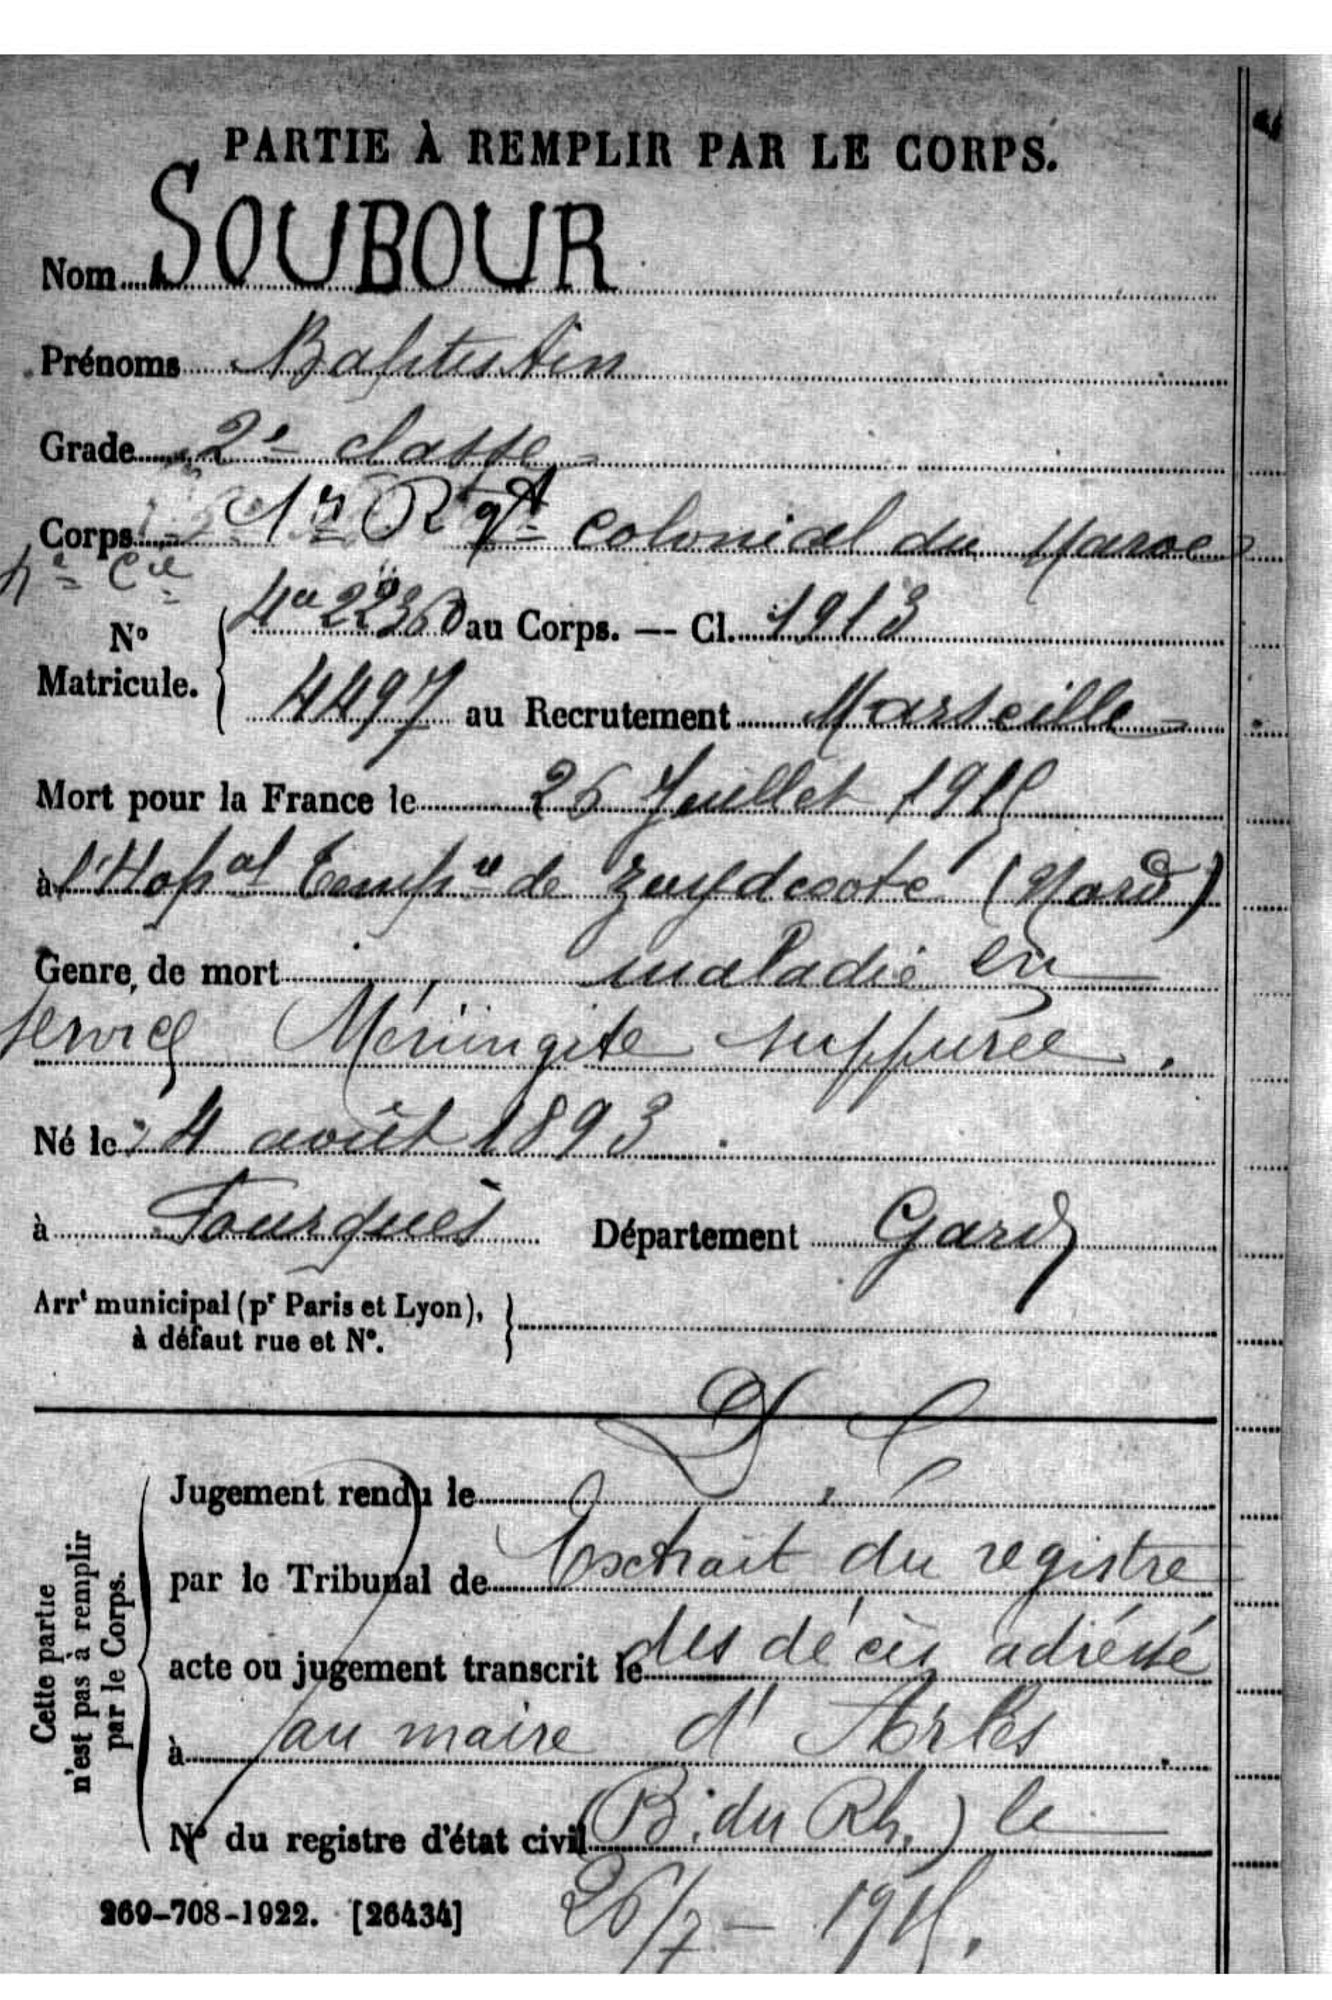 PARTIE À REMPLIR PAR LE CORPS.
Nom SOUBOUR
Prénoms Baptistin
Grade 2e classe
Corps 1er Rgt colonial du Maroc
4e Cie
No Matricule. 22360 au Corps. — Cl. 1913
4497 au Recrutement Marseille
Mort pour la France le 26 Juillet 1915
à l'Hopal Tempre de Zuydcoote (Nord)
Genre de mort maladie en
service Méningite suppurée.
Né le 4 août 1893
à Fourques Département Gard
Arrt municipal (pr Paris et Lyon),
à défaut rue et No.
Cette partie
n'est pas à remplir
par le Corps.
Jugement rendu le
par le Tribunal de Extrait du registre
acte ou jugement transcrit le des décès adressé
à au maire d'Arles
No du registre d'état civil (B. du Rh.) le
26/7 - 1915.
269-708-1922. [26434]